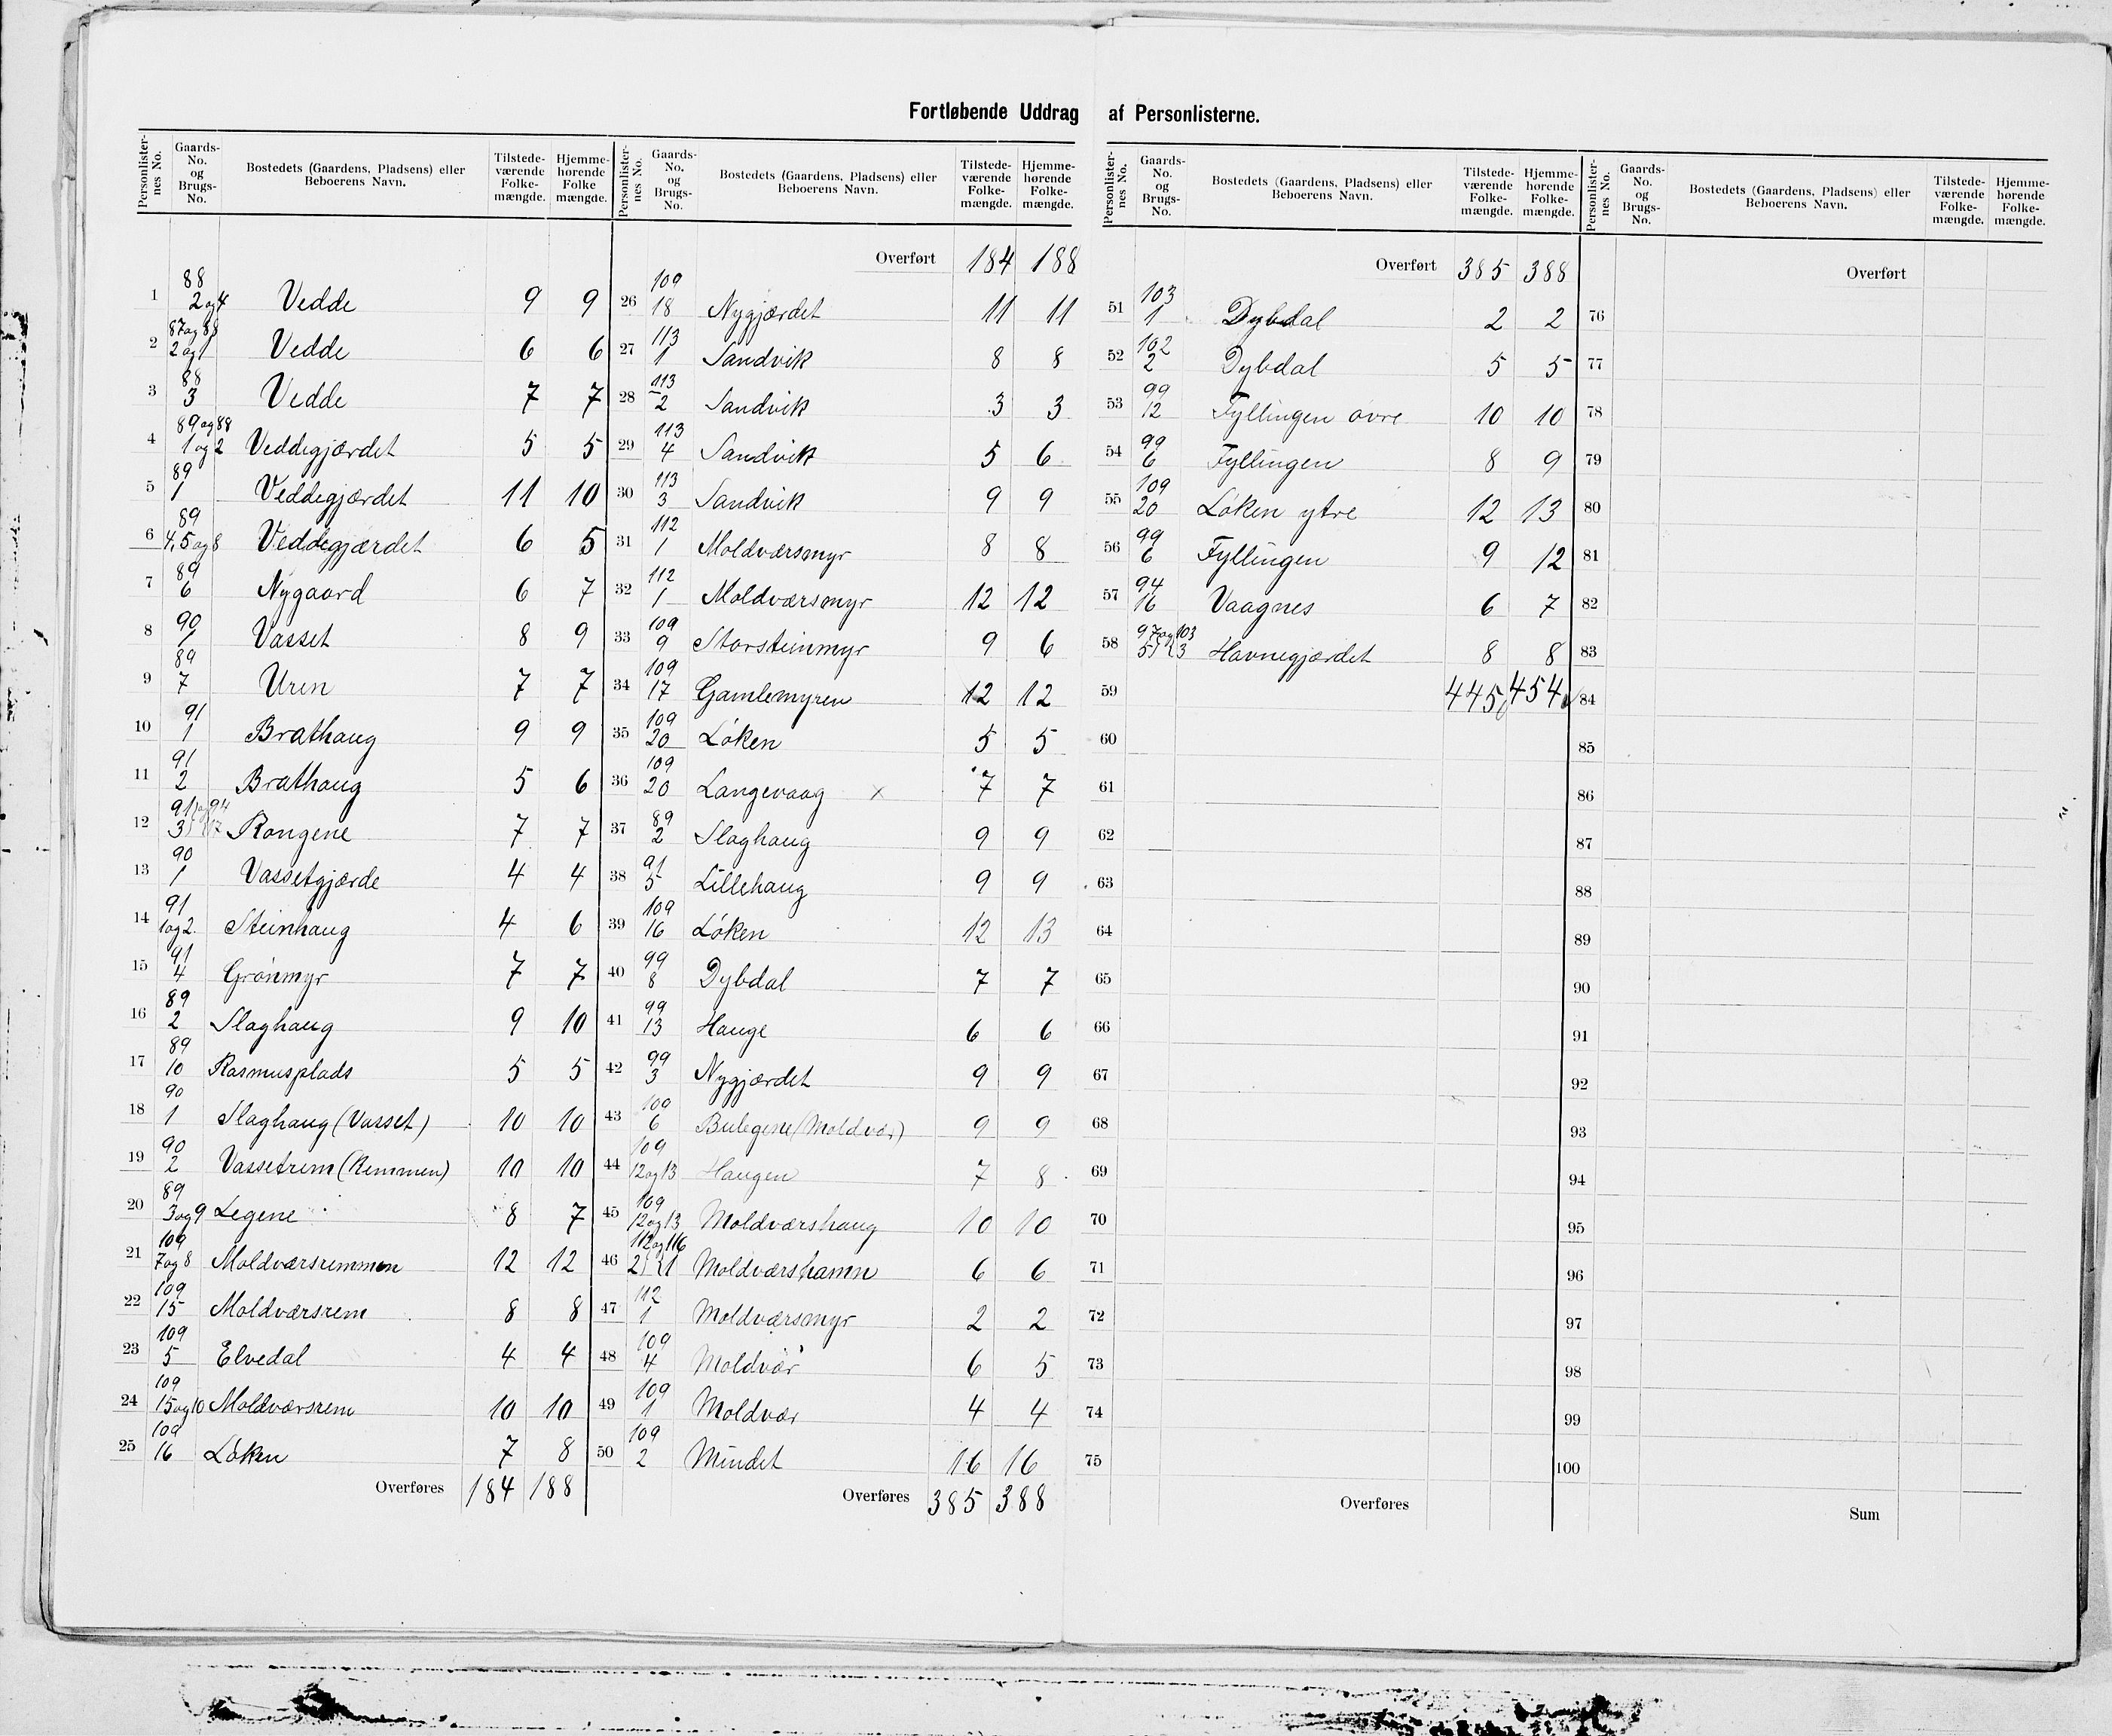 Fortløbende Uddrag af Personlisterne.
Personlister-nes No. | Gaards-No. og Brugs-No. | Bostedets (Gaardens, Pladsens) eller Beboerens Navn. | Tilstede-værende Folke-mængde. | Hjemme-hørende Folke mængde.
1 | 88 2 og 4 | Vedde | 9 | 9
2 | 87 og 88 2 og 1 | Vedde | 6 | 6
3 | 88 3 | Vedde | 7 | 7
4 | 89 og 88 1 og 2 | Veddegjærdet | 5 | 5
5 | 89 1 | Veddegjærdet | 11 | 10
6 | 89 4, 5 og 8 | Veddegjærdet | 6 | 5
7 | 89 6 | Nygaard | 6 | 7
8 | 90 1 | Vasset | 8 | 9
9 | 89 7 | Uren | 7 | 7
10 | 91 1 | Brathaug | 9 | 9
11 | 91 2 | Brathaug | 5 | 6
12 | 91 og 94 3 17 | Rongene | 7 | 7
13 | 90 1 | Vassetgjærde | 4 | 4
14 | 91 1 og 2 | Steinhaug | 4 | 6
15 | 91 4 | Grönmyr | 7 | 7
16 | 89 2 | Slaghaug | 9 | 10
17 | 89 10 | Rasmusplads | 5 | 5
18 | 90 1 | Slaghaug (Vasset) | 10 | 10
19 | 90 2 | Vassetrem (Remmen) | 10 | 10
20 | 89 3 og 9 | Legene | 8 | 7
21 | 109 7 og 8 | Moldværsremmen | 12 | 12
22 | 109 15 | Moldværsrem | 8 | 8
23 | 109 5 | Elvedal | 4 | 4
24 | 109 15 og 10 | Moldværsrem | 10 | 10
25 | 109 16 | Löken | 7 | 8
Overføres | 184 | 188
Personlister-nes No. | Gaards-No. og Brugs-No. | Bostedets (Gaardens, Pladsens) eller Beboerens Navn. | Tilstede-værende Folke-mængde. | Hjemme-hørende Folke-mængde.
Overført | 184 | 188
26 | 109 18 | Nygjærdet | 11 | 11
27 | 113 1 | Sandvik | 8 | 8
28 | 113 2 | Sandvik | 3 | 3
29 | 113 4 | Sandvik | 5 | 6
30 | 113 3 | Sandvik | 9 | 9
31 | 112 1 | Moldværsmyr | 8 | 8
32 | 112 1 | Moldværsmyr | 12 | 12
33 | 109 9 | Storsteinmyr | 9 | 6
34 | 109 17 | Gamlemyren | 12 | 12
35 | 109 20 | Löken | 5 | 5
36 | 109 20 | Langevaag x | 7 | 7
37 | 89 2 | Slaghaug | 9 | 9
38 | 91 5 | Lillehaug | 9 | 9
39 | 109 16 | Löken | 12 | 13
40 | 99 8 | Dybdal | 7 | 7
41 | 99 13 | Hauge | 6 | 6
42 | 99 3 | Nygjærdet | 9 | 9
43 | 109 6 | Bulegene (Moldvær) | 9 | 9
44 | 109 12 og 13 | Haugen | 7 | 8
45 | 109 12 og 13 | Moldværshaug | 10 | 10
46 | 112 og 116 2 1 | Moldværshamn | 6 | 6
47 | 112 1 | Moldværsmyr | 2 | 2
48 | 109 4 | Moldvær | 6 | 5
49 | 109 1 | Moldvær | 4 | 4
50 | 109 2 | Mindet | 16 | 16
Overføres | 385 | 388
Personlister-nes No. | Gaards-No. og Brugs-No. | Bostedets (Gaardens, Pladsens) eller Beboerens Navn. | Tilstede-værende Folke-mængde. | Hjemme-hørende Folke-mængde.
Overført | 385 | 388
51 | 103 1 | Dybdal | 2 | 2
52 | 102 2 | Dybdal | 5 | 5
53 | 99 12 | Fyllingen øvre | 10 | 10
54 | 99 6 | Fyllingen | 8 | 9
55 | 109 20 | Löken ytre | 12 | 13
56 | 99 6 | Fyllingen | 9 | 12
57 | 94 16 | Vaagnes | 6 | 7
58 | 97 og 103 5 3 | Havnegjærdet | 8 | 8
59 | 445 | 454
60
61
62
63
64
65
66
67
68
69
70
71
72
73
74
75
Overføres
Personlister-nes No. | Gaards-No. og Brugs-No. | Bostedets (Gaardens, Pladsens) eller Beboerens Navn. | Tilstede-værende Folke-mængde. | Hjemme-hørende Folke-mængde.
Overført
76
77
78
79
80
81
82
83
84
85
86
87
88
89
90
91
92
93
94
95
96
97
98
99
100
Sum